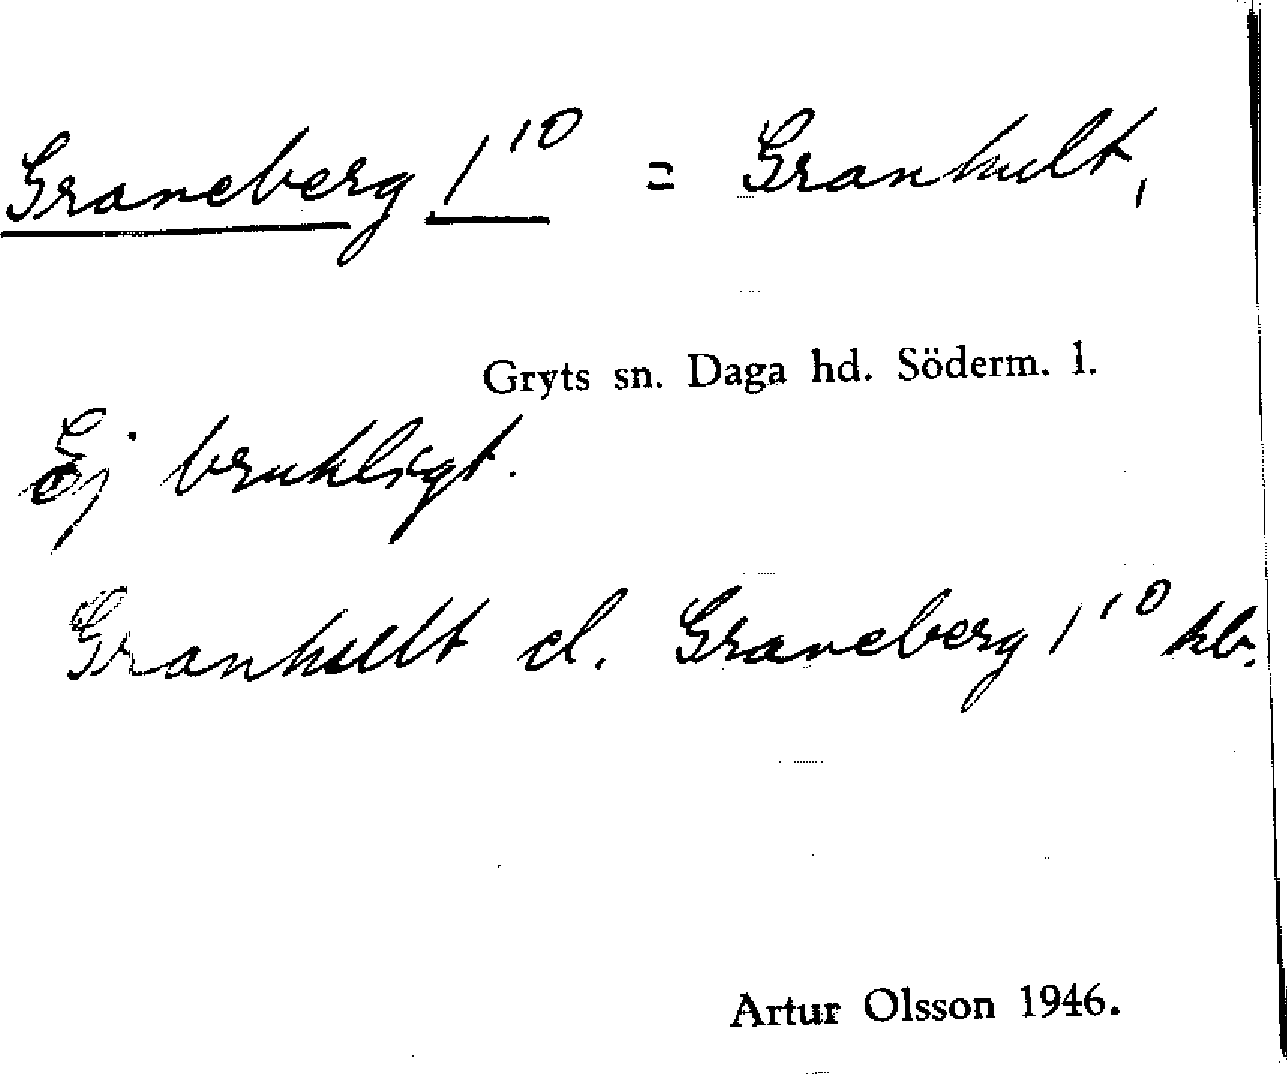 Graneberg 1¹⁰ = Granhult,
Gryts sn. Daga hd. Söderm. l.
Ej brukligt.
Granhult el. Graneberg 1¹⁰ kb.
Artur Olsson 1946.